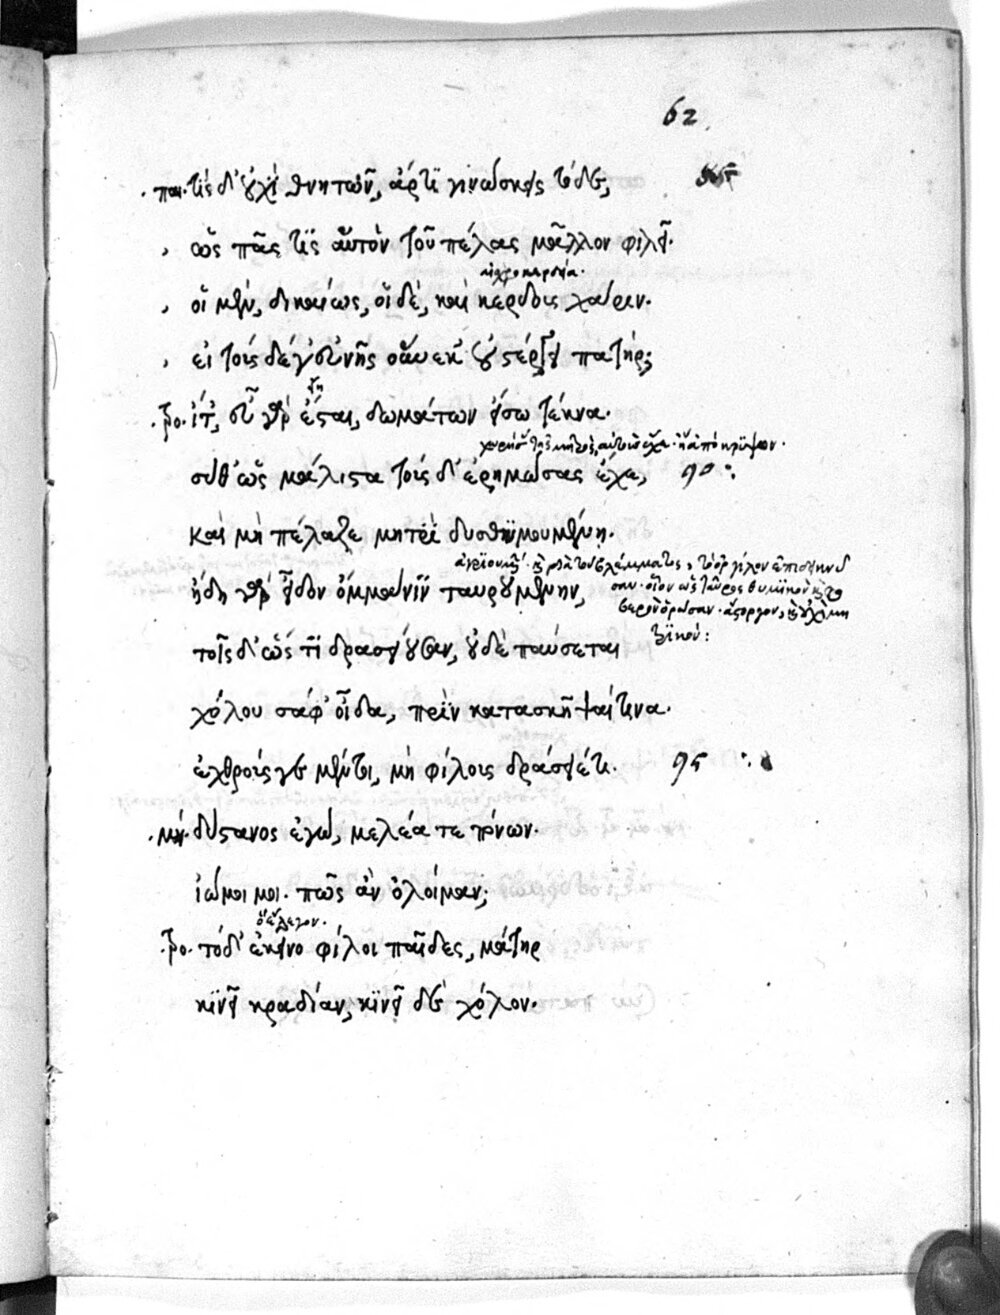 62
παι. τίς δ' οὐχὶ θνητῶν, ἄρτι γινώσκεις τόδε,
ὡς πᾶς τις αὑτὸν τοῦ πέλας μᾶλλον φιλεῖ.
αἰσχροκερδεία.
οἱ μὲν, δικαίως, οἱ δὲ, καὶ κέρδους χάριν.
εἰ τούς δέ γ' εὐνῆς οὕνεκ' οὐ στέργει πατήρ;
τρο. ἴτ', εὖ γὰρ ἔσται, δωμάτων εἴσω τέκνα.
σὺ δ' ὡς μάλιστα τούσδ' ἐρημώσας ἔχε, 90
καὶ μὴ πέλαζε μητρὶ δυσθυμουμένῃ.
ἤδη γὰρ εἶδον ὄμμα νιν ταυρουμένην,
τοῖσδ' ὥς τι δρασείουσαν, οὐδὲ παύσεται
χόλου σάφ' οἶδα, πρὶν κατασκῆψαί τινα.
ἐχθρούς γε μέντοι, μὴ φίλους δράσειέ τι. 95
μή. δύστανος ἐγὼ, μελέα τε πόνων.
ἰώ μοι μοι. πῶς ἂν ὀλοίμαν;
ὃ ἔλεγον.
τρο. τόδ' ἐκεῖνο φίλοι παῖδες, μάτηρ
κινεῖ κραδίαν, κινεῖ δὲ χόλον.